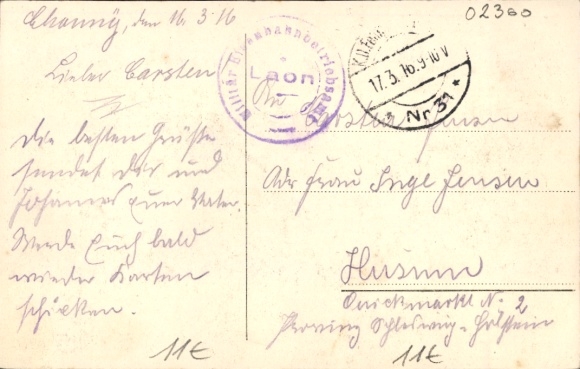 02360
Chauny, den 16.3.16
Lieber Carsten
Die besten Grüße
sendet Dir und
Johannes Euer Vater.
Werde Euch bald
wieder Karten
schicken.
Militär Eisenbahnbetriebsamt
Laon
17.3.16.9-10V
* Nr 31 *
An
Jensen
Adr Frau Inge Jensen
Husum
Quickmarkt No 2
Provinz Schleswig-Holstein
11€
11€